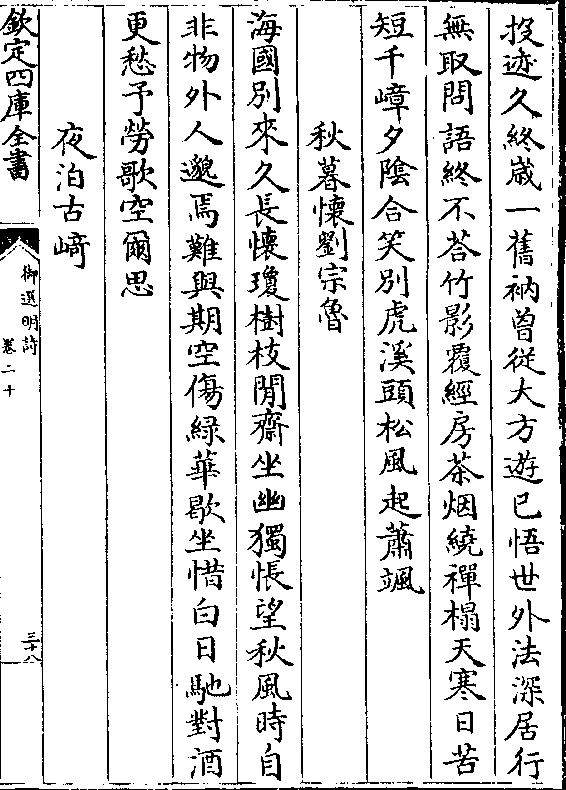 投迹久終歲一舊衲曾從大方遊已悟世外法深居行
無取問語終不荅竹影覆經房茶烟繞禪榻天寒日苦
短千嶂夕陰合笑別虎溪頭松風起蕭颯
秋暮懷劉宗魯
海國別來久長懷瓊樹枝閒齋坐幽獨悵望秋風時自
非物外人邈焉難與期空傷綠華歇坐惜白日馳對酒
更愁予勞歌空爾思
夜泊古﨑
欽定四庫全書
御選明詩
卷二十
三十八